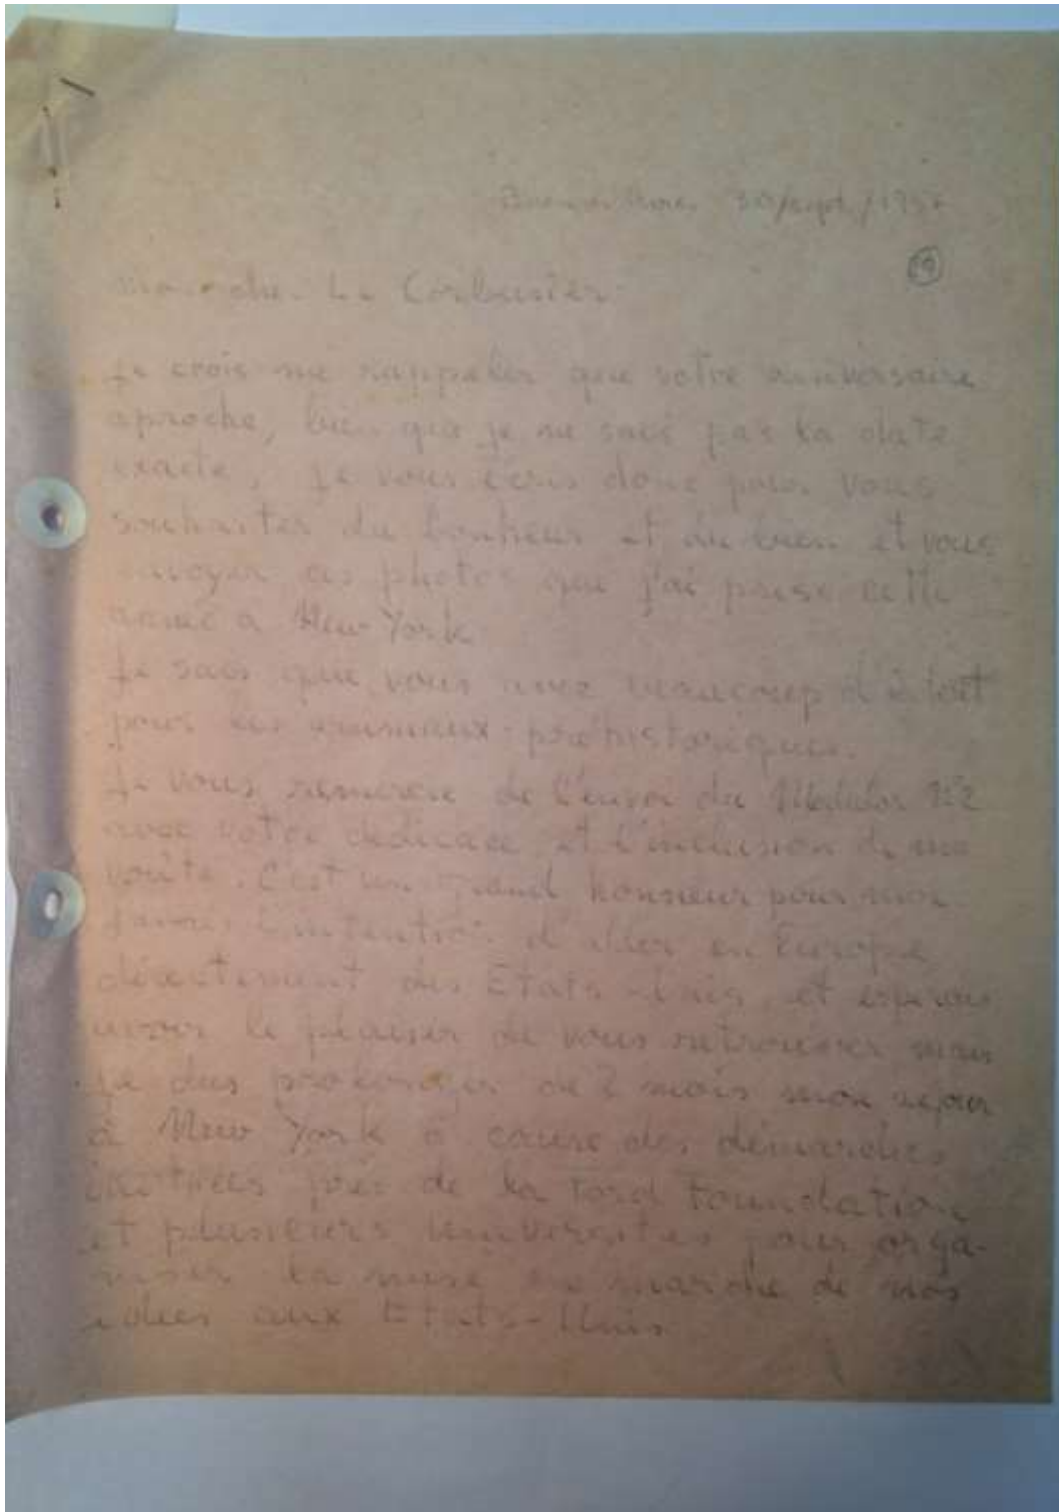 Buenos Aires 30/sept./195
10
Le Corbusier
Je crois me rappeler que votre anniversaire
aproche, bien que je ne sais pas la date
exacte, Je vous écris donc pour vous
souhaiter du bonheur et du bien et vous
envoyer ces photos que j'ai prise cette
année a New York
Je sais que vous avez beaucoup
pour les animaux préhistoriques.
Je vous remercie de l'envoi du Modulor Nº2
avec votre dedicace et l'inclusion de ma
voûte. C'est un grand honneur pour moi
J'avais l'intention d'aller en Europe
directement des Etats-Unis, et esperais
avoir le plaisir de vous retrouver mais
Je dus prolonger de 2 mois mon sejour
à New York à cause des démarches
près de la Ford Foundation
et plusieurs Universites pour orga-
niser la mise en marche de
idées aux Etats-Unis